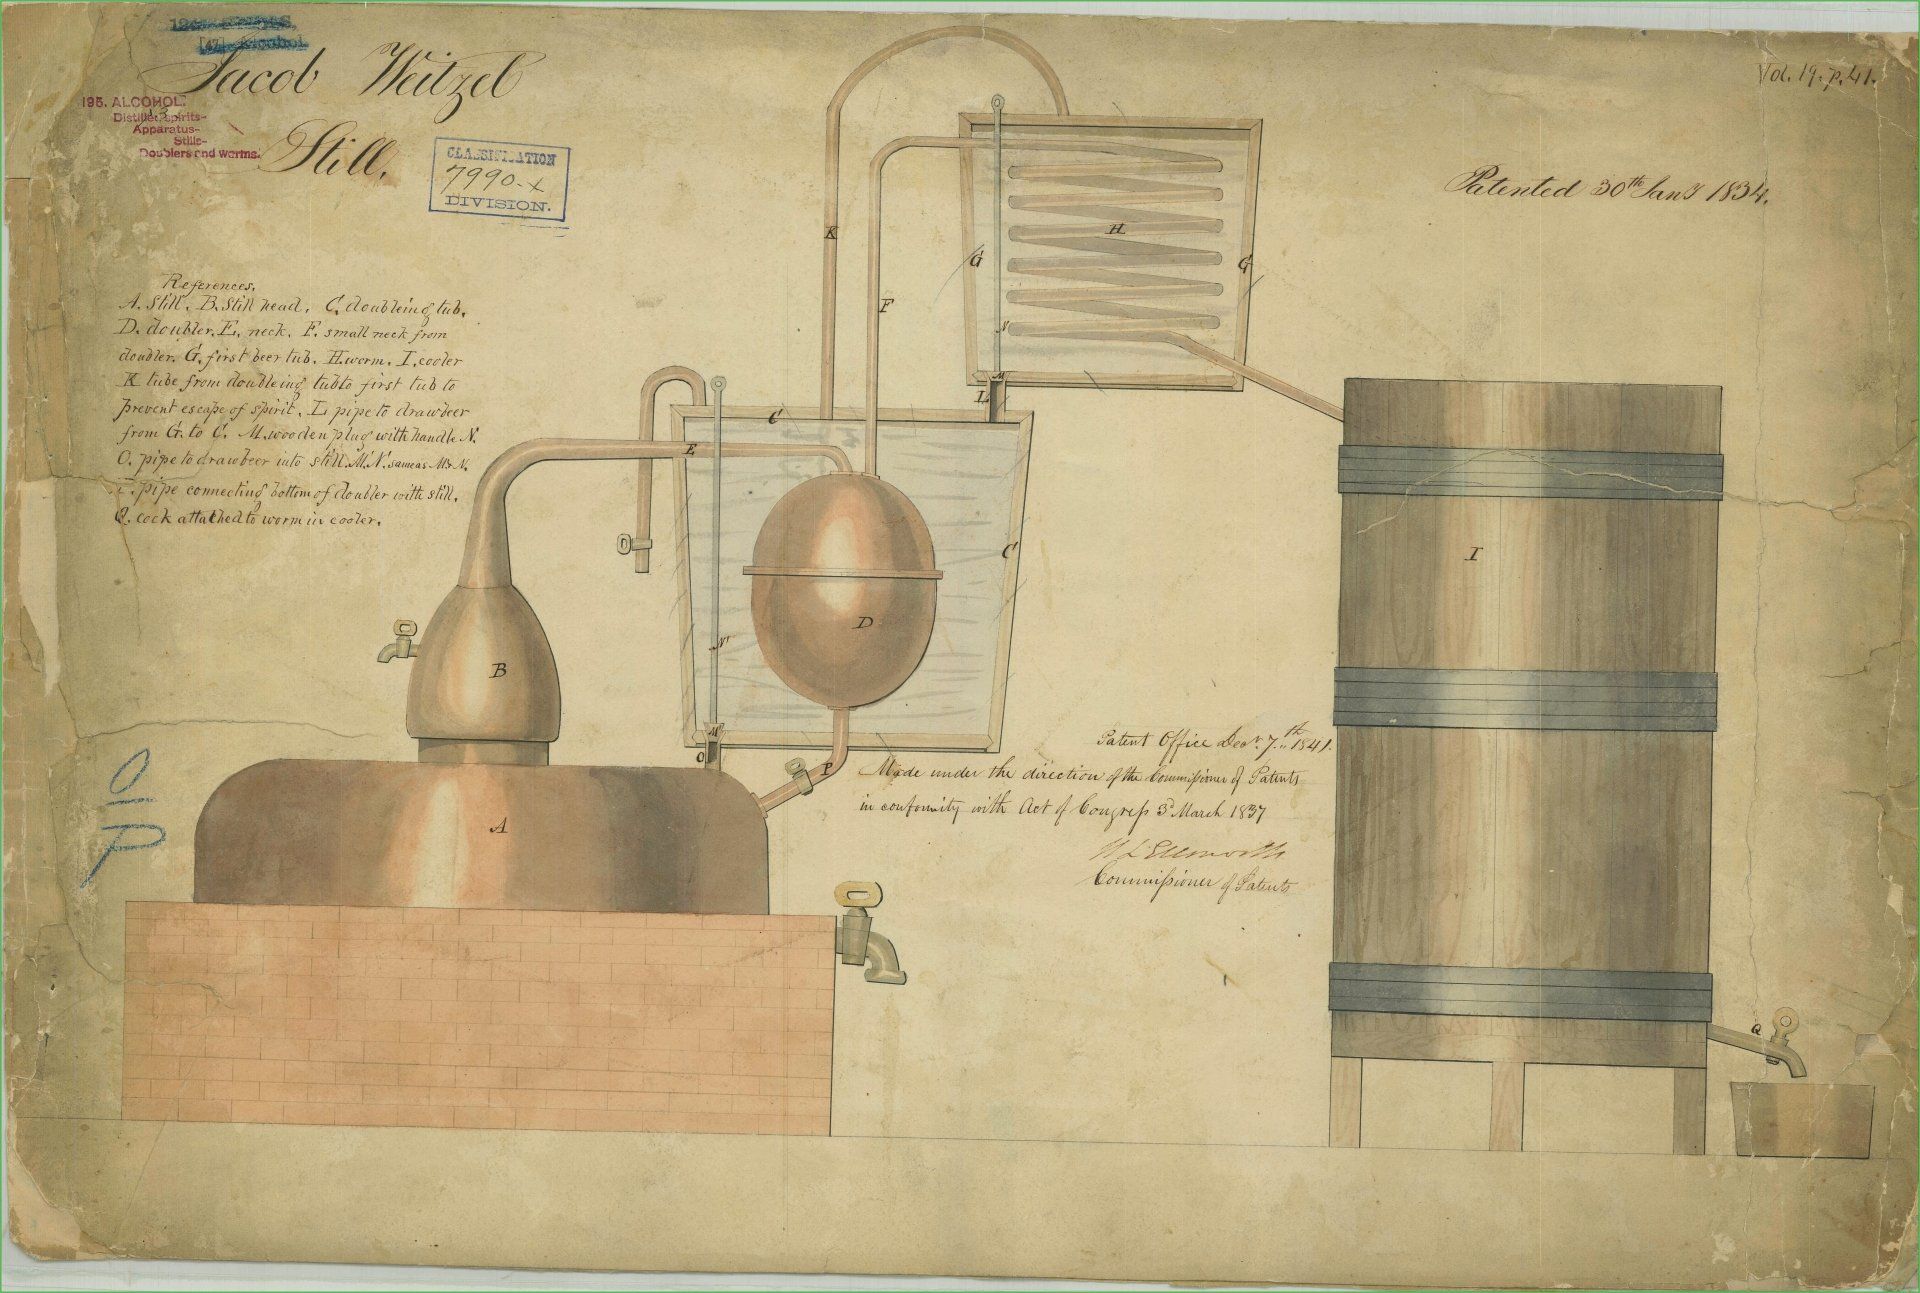 [47] Alcohol
Jacob Weitzel
195. ALCOHOL.
13
Distilled spirits-
Apparatus-
Stills-
Doublers and worms.
Still.
CLASSIFICATION
7990-x
DIVISION.
Vol. 19. p. 41.
Patented 30th Jany 1834.
References.
A. Still. B. Still head. C. doubleing tub.
D. doubler. E. neck. F. small neck from
doubler. G. first beer tub. H. worm. I. cooler
K tube from doubleing tub to first tub to
prevent escape of spirit. L pipe to draw beer
from G. to C. M. wooden plug with handle N.
O. pipe to draw beer into still. M'. N'. same as M & N.
P. pipe connecting bottom of doubler with still.
Q. cock attached to worm in cooler.
K
G
H
G
F
N
M
L
C
E
C
I
D
N'
B
M'
O
P
A
Q
Patent Office Decr. 7th 1841.
Made under the direction of the Commissioner of Patents
in conformity with Act of Congress 3d March 1837
H L Ellsworth
Commissioner of Patents
O
P